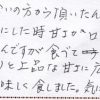 いの方から頂いたん
にした時甘さが口
んですが食べて
と上品な甘さに
味しく食しました。気